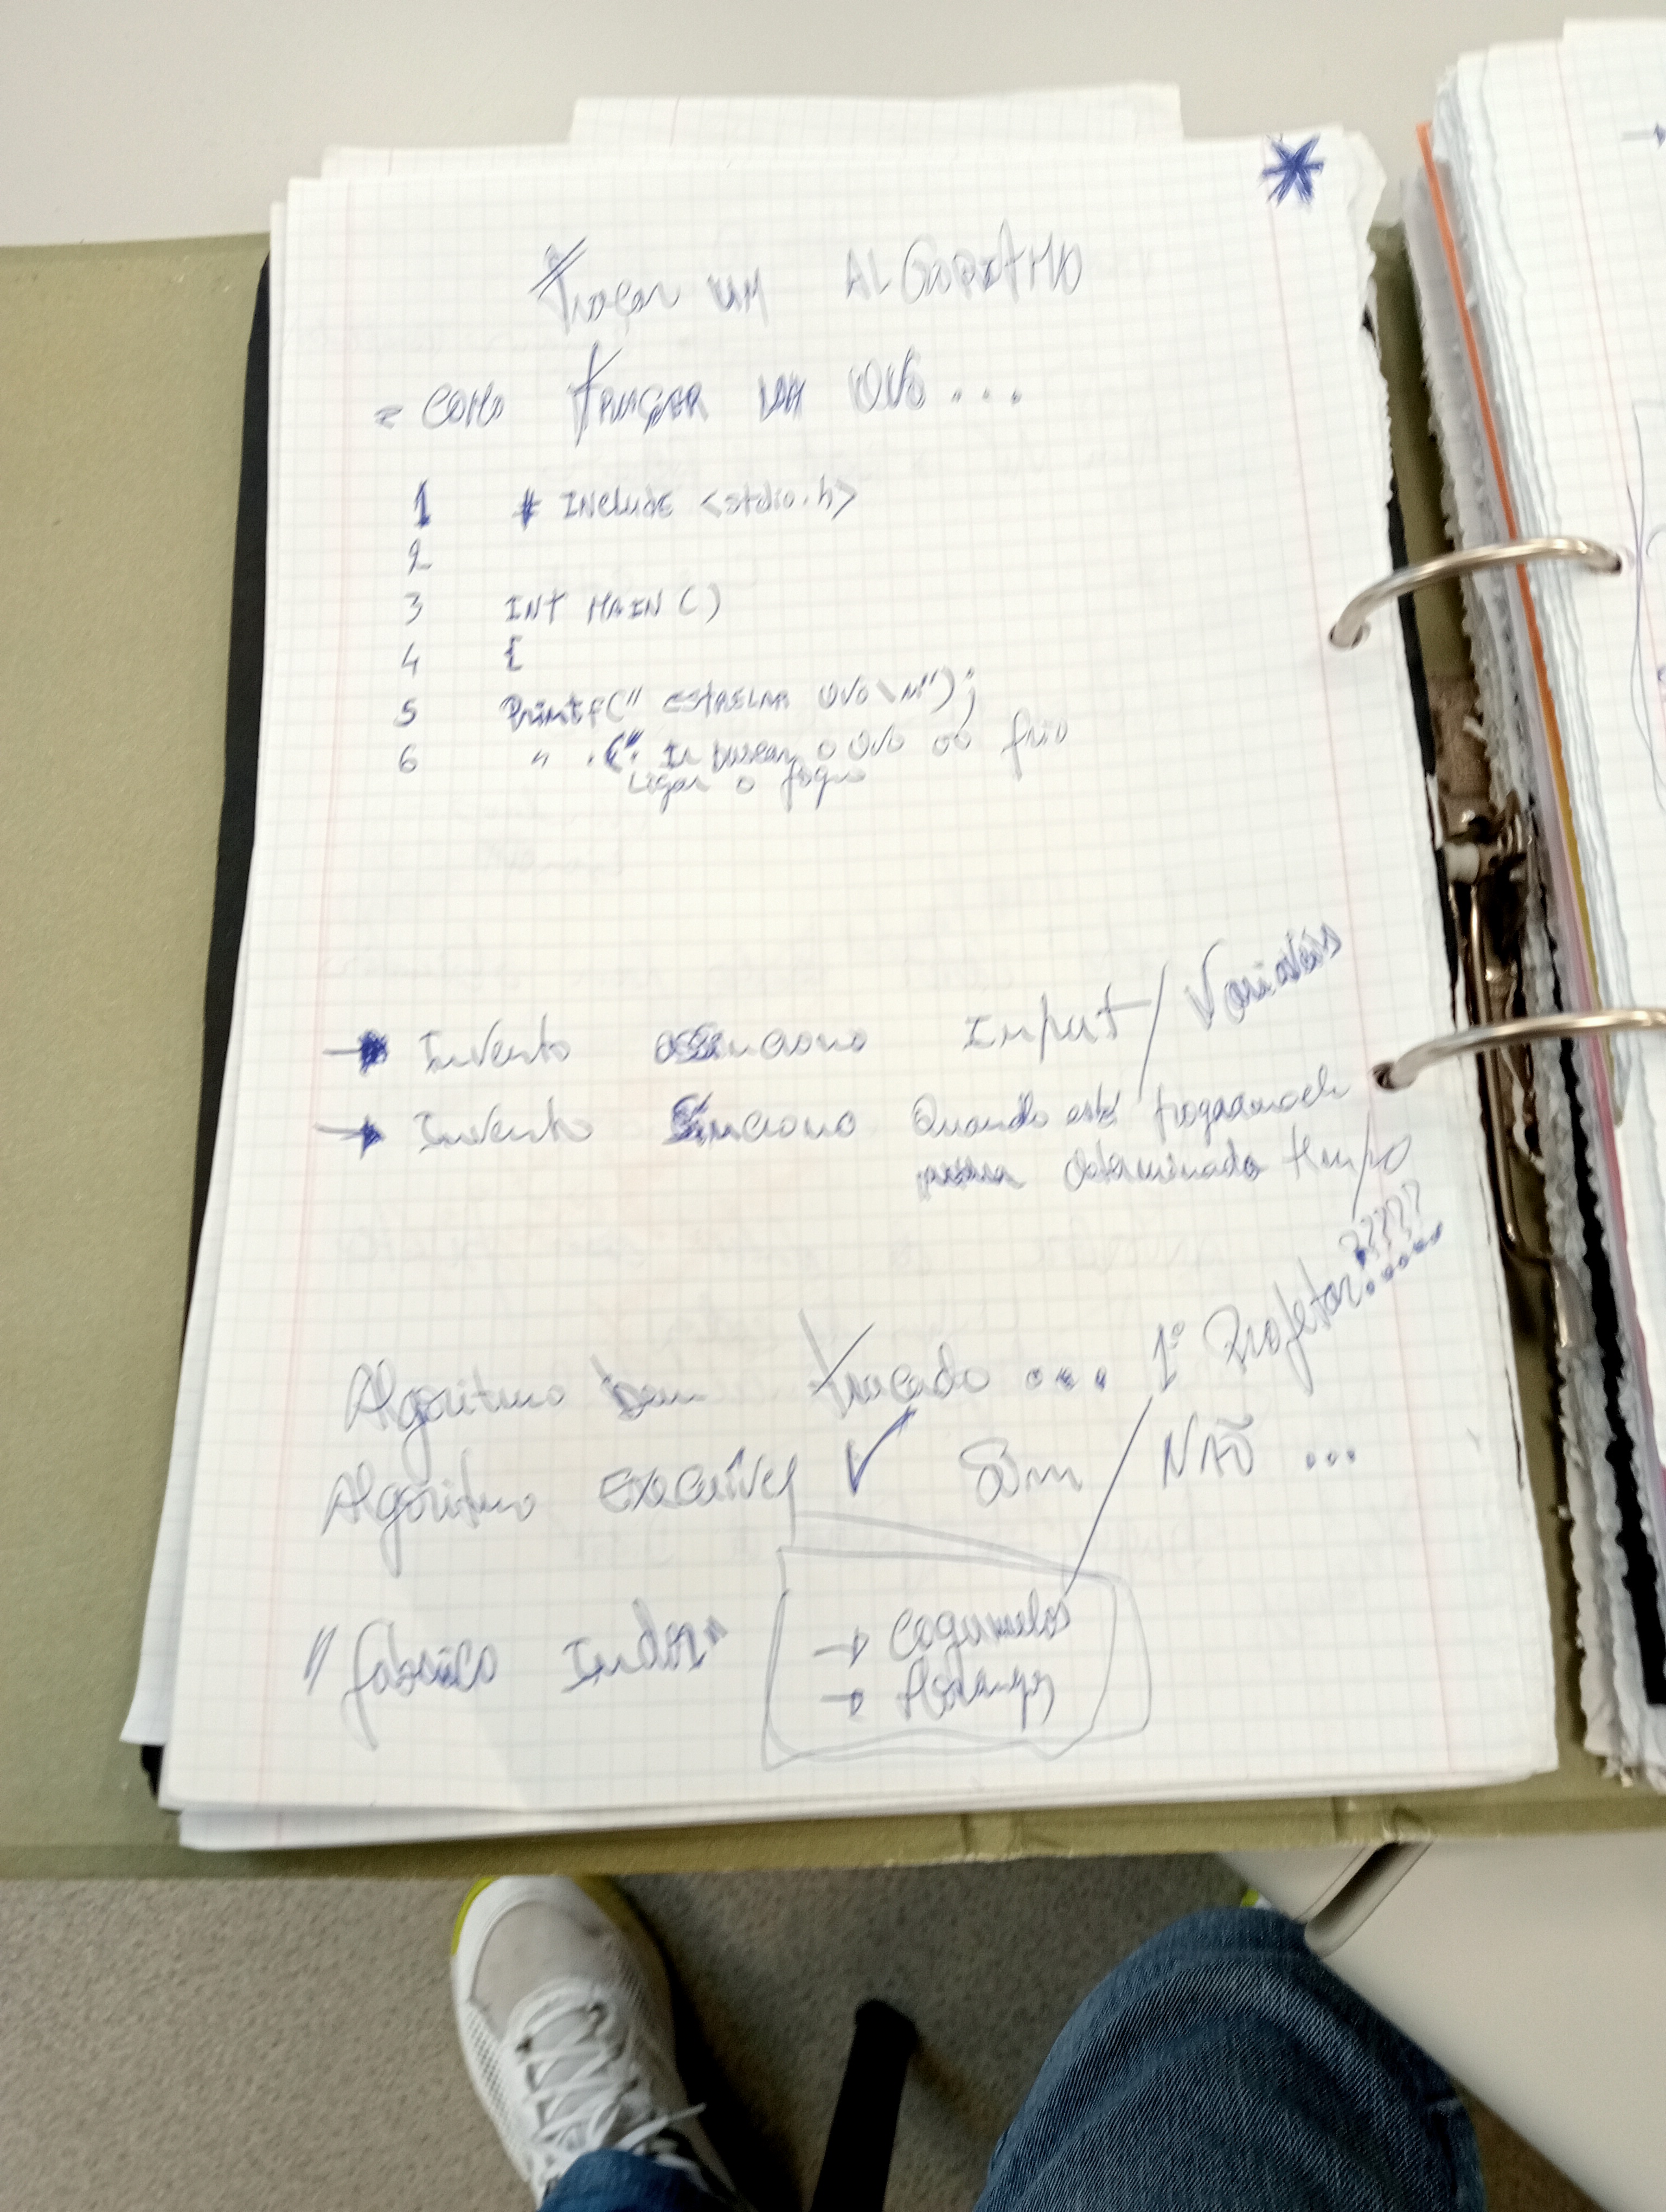 Traçar um ALGORITMO
= COMO TRAÇAR UM OVO ...
1 # INClude <stdio.h>
2
3 INT MAIN ()
4 {
5 Printf(" ESTRELAR OVO \N");
6 " (" Ir buscar o OVO ao frio
Ligar o fogo
→ Invento assincrono Input / Variáveis
→ Invento Sincrono Quando está programado
determinado tempo
Algoritmo bem tracado ... 1º ?????
Algoritmo EXECUÍVEL ✓ Sim / NÃO ...
" fabrica Indor "
→ Cogumelos
→ Morangos